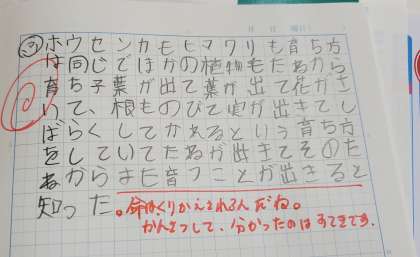 ホウセンカもヒマワリも育ち方
は同じでほかの植物もたねから
育ち子葉が出て葉が出て花がさ
いて、根ものびて実が出きてし
ばらくしてかれるという育ち方
をしていてたねが出きてそのた
ねからまた育つことが出きると
知った。命はくりかえされるんだね。
かんさつして、分かったのはすてきです。